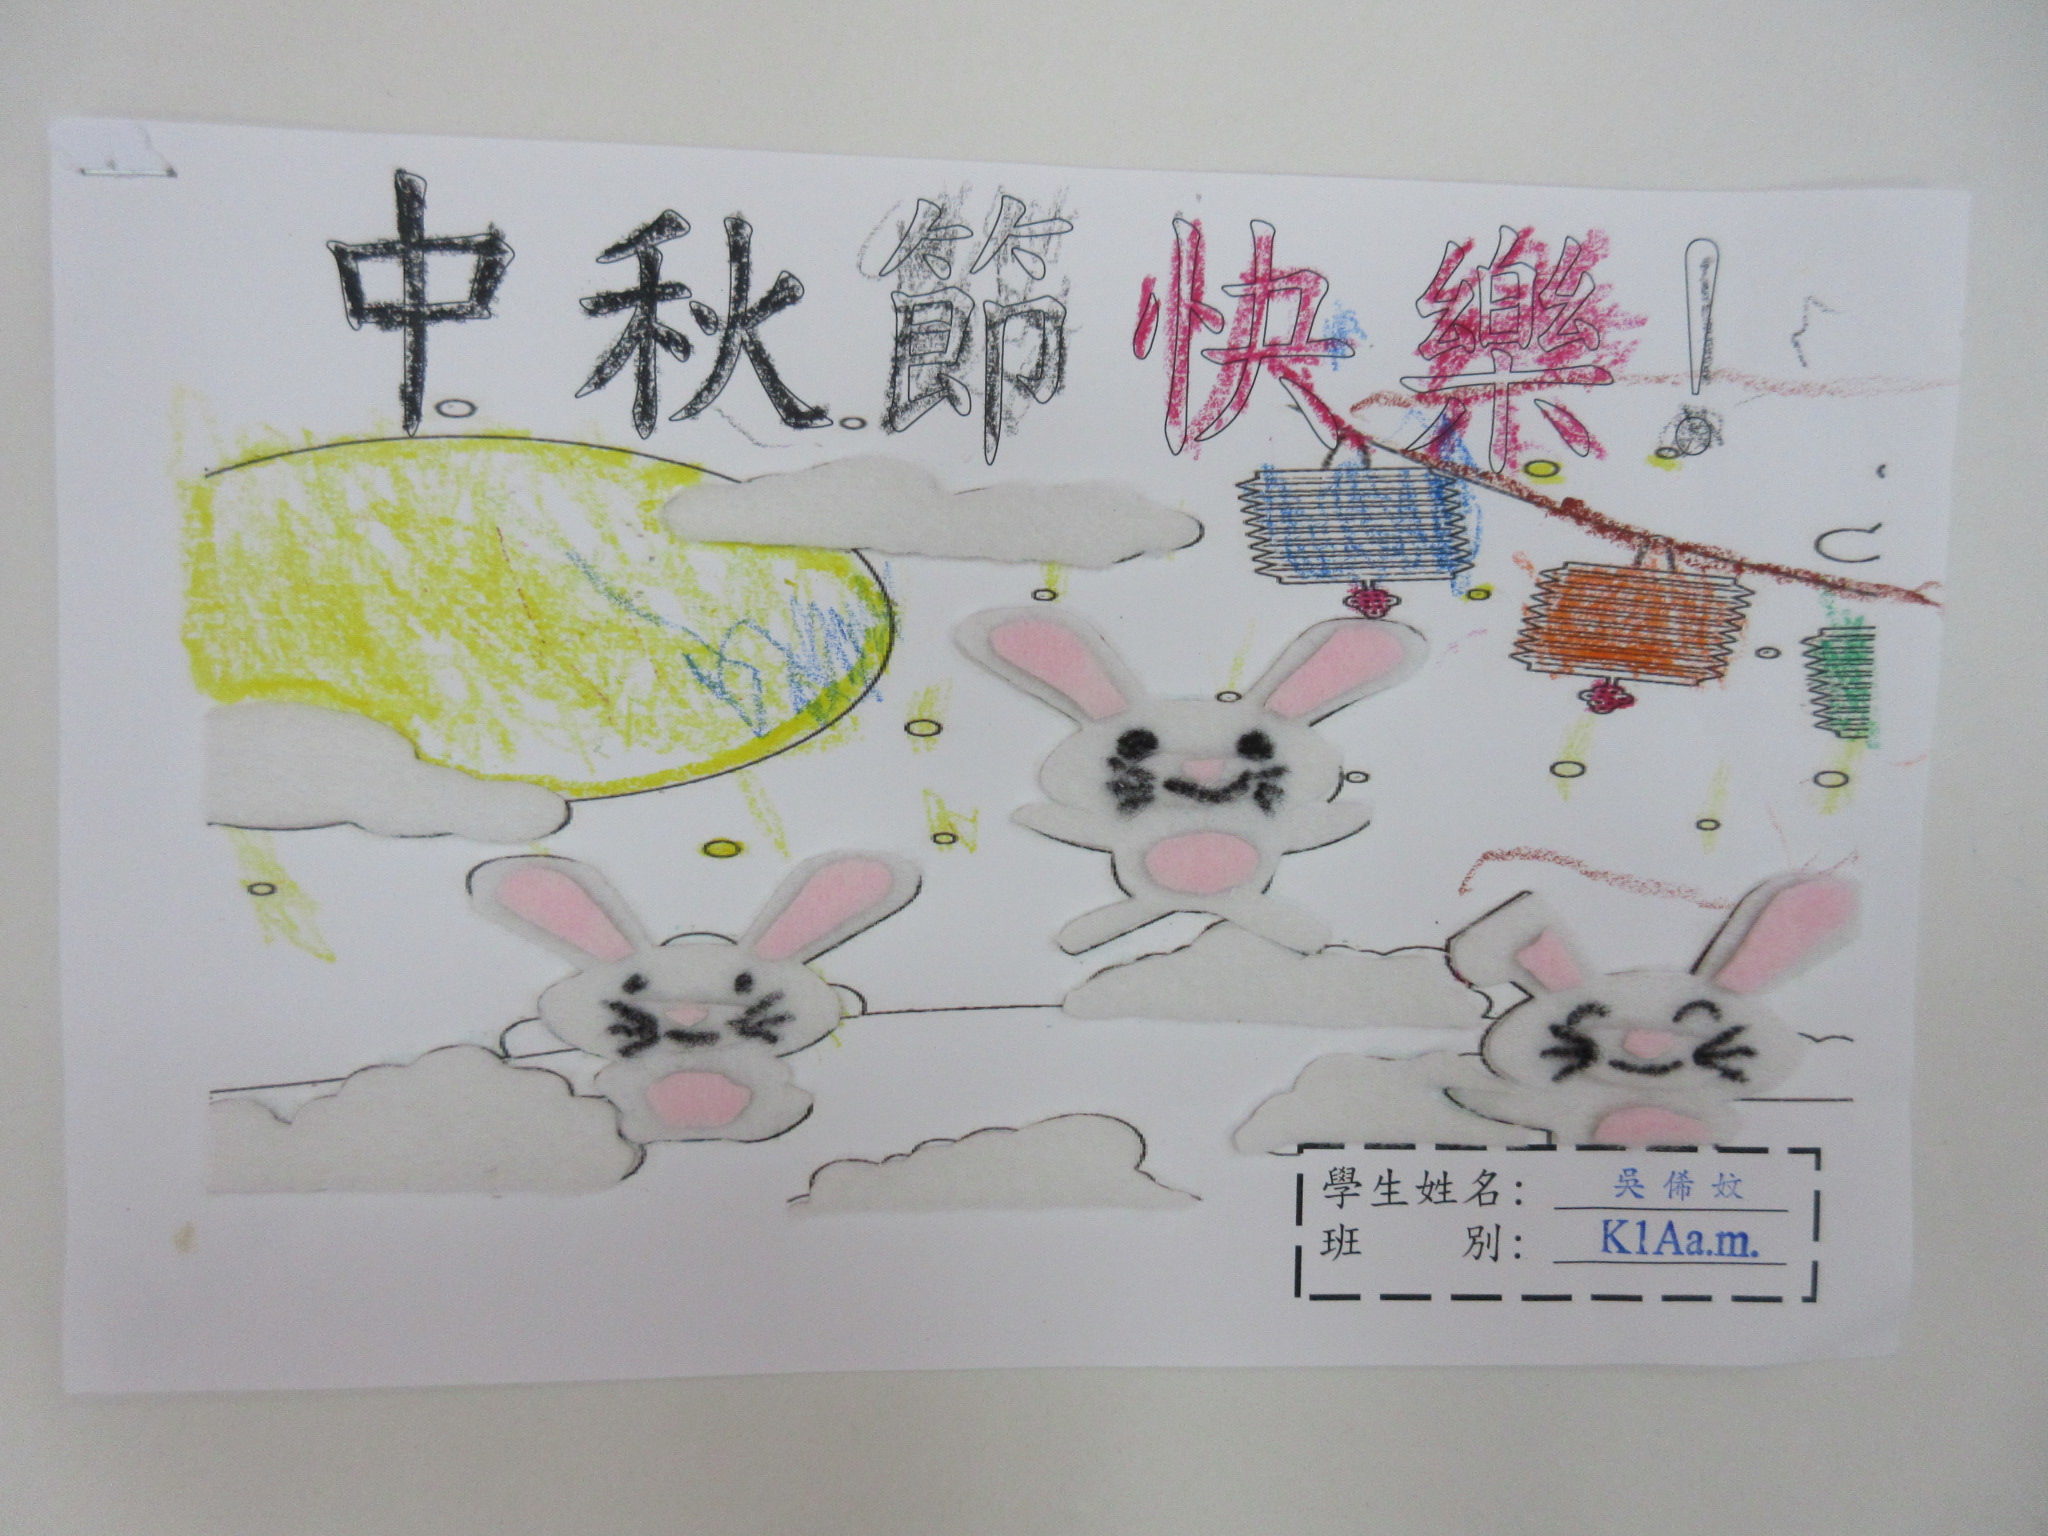 中秋節快樂!
學生姓名: 吳俙妏
班 別: K1Aa.m.